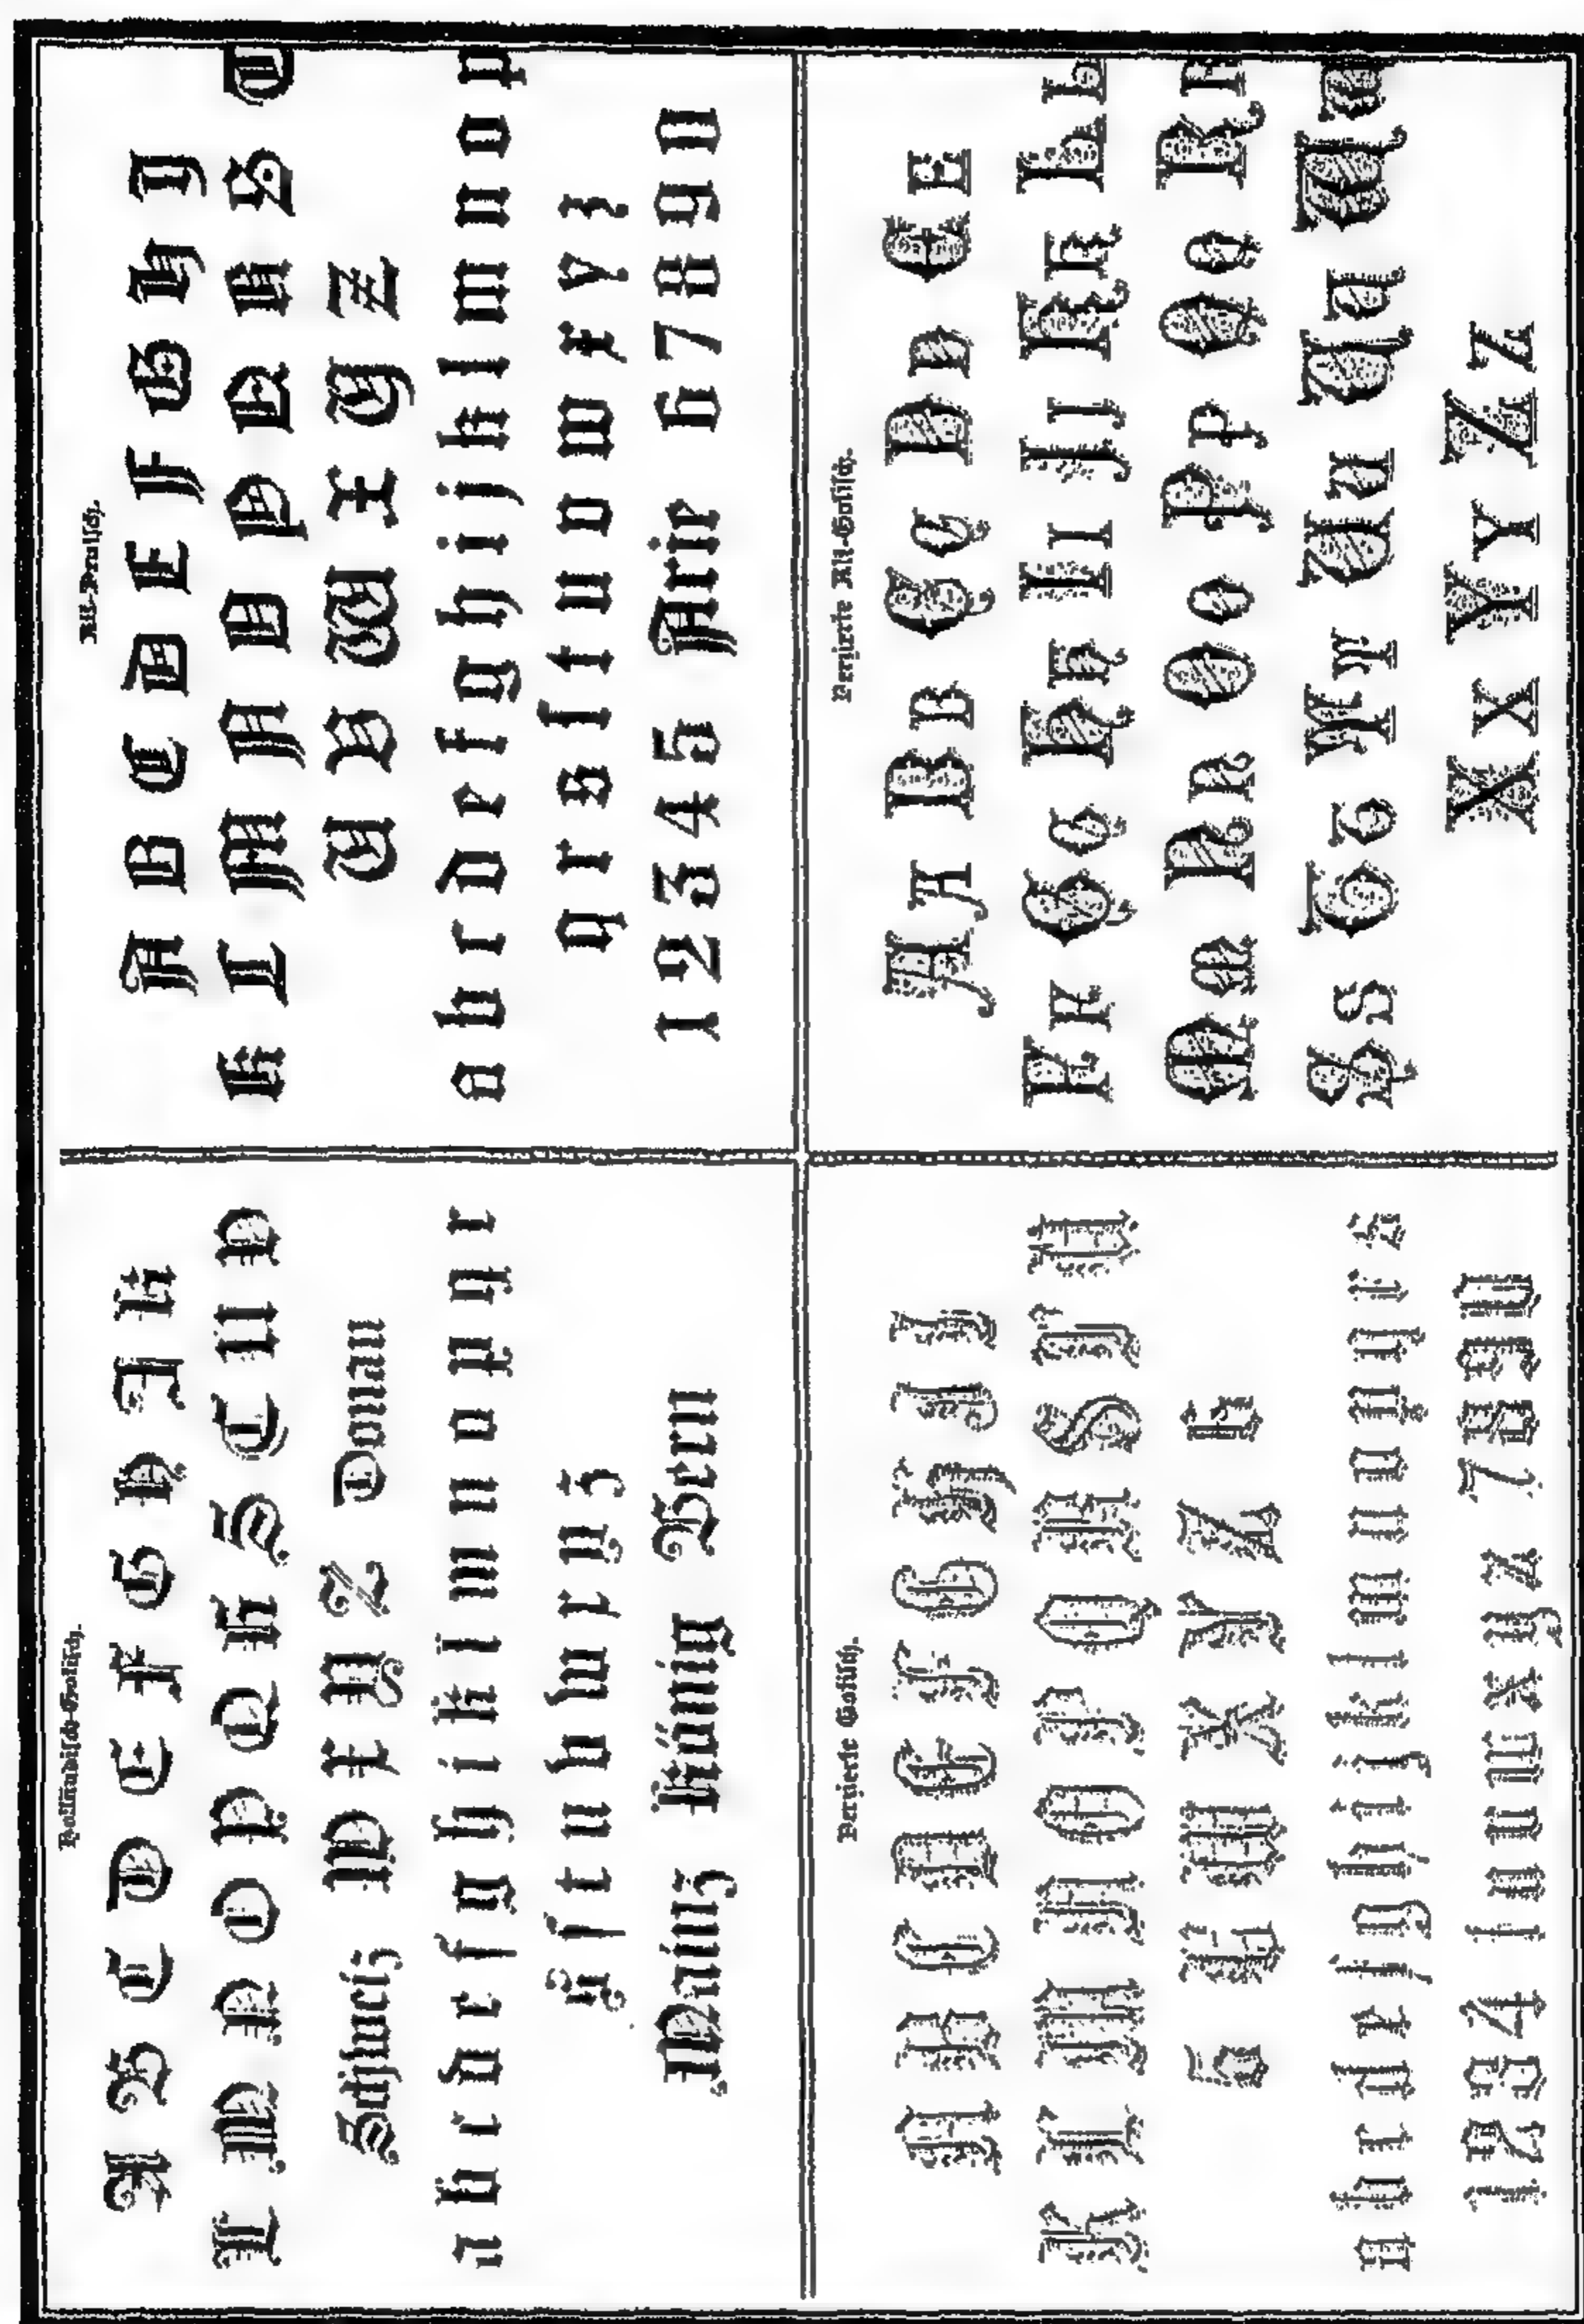 Holländisch-Gotisch.
A B C D E F G H I K
L M N O P Q R S T U V
Schweiz W X Y Z Donau
a b c d e f g h i k l m n o p q r
s ſ t u v w x y z
Mainz König Bern
Alt-Deutsch.
A B C D E F G H J
K L M N O P Q R S T
U V W X Y Z
a b c d e f g h i j k l m n o p
q r s ſ t u v w x y z
1 2 3 4 5 Arie 6 7 8 9 0
Verzierte Gotisch.
A B C D E F G H J I
K L M N O P Q R S T U
5 V W X Y Z 6
a b c d e f g h i j k l m n o p q r s
1 2 3 4 t u v w x y z 7 8 9 0
Verzierte Alt-Gotisch.
A A B B C C D D E E
F F G G H H I I J J K K L L
M M N N O O P P Q Q R R
S S T T U U V V W W
X X Y Y Z Z